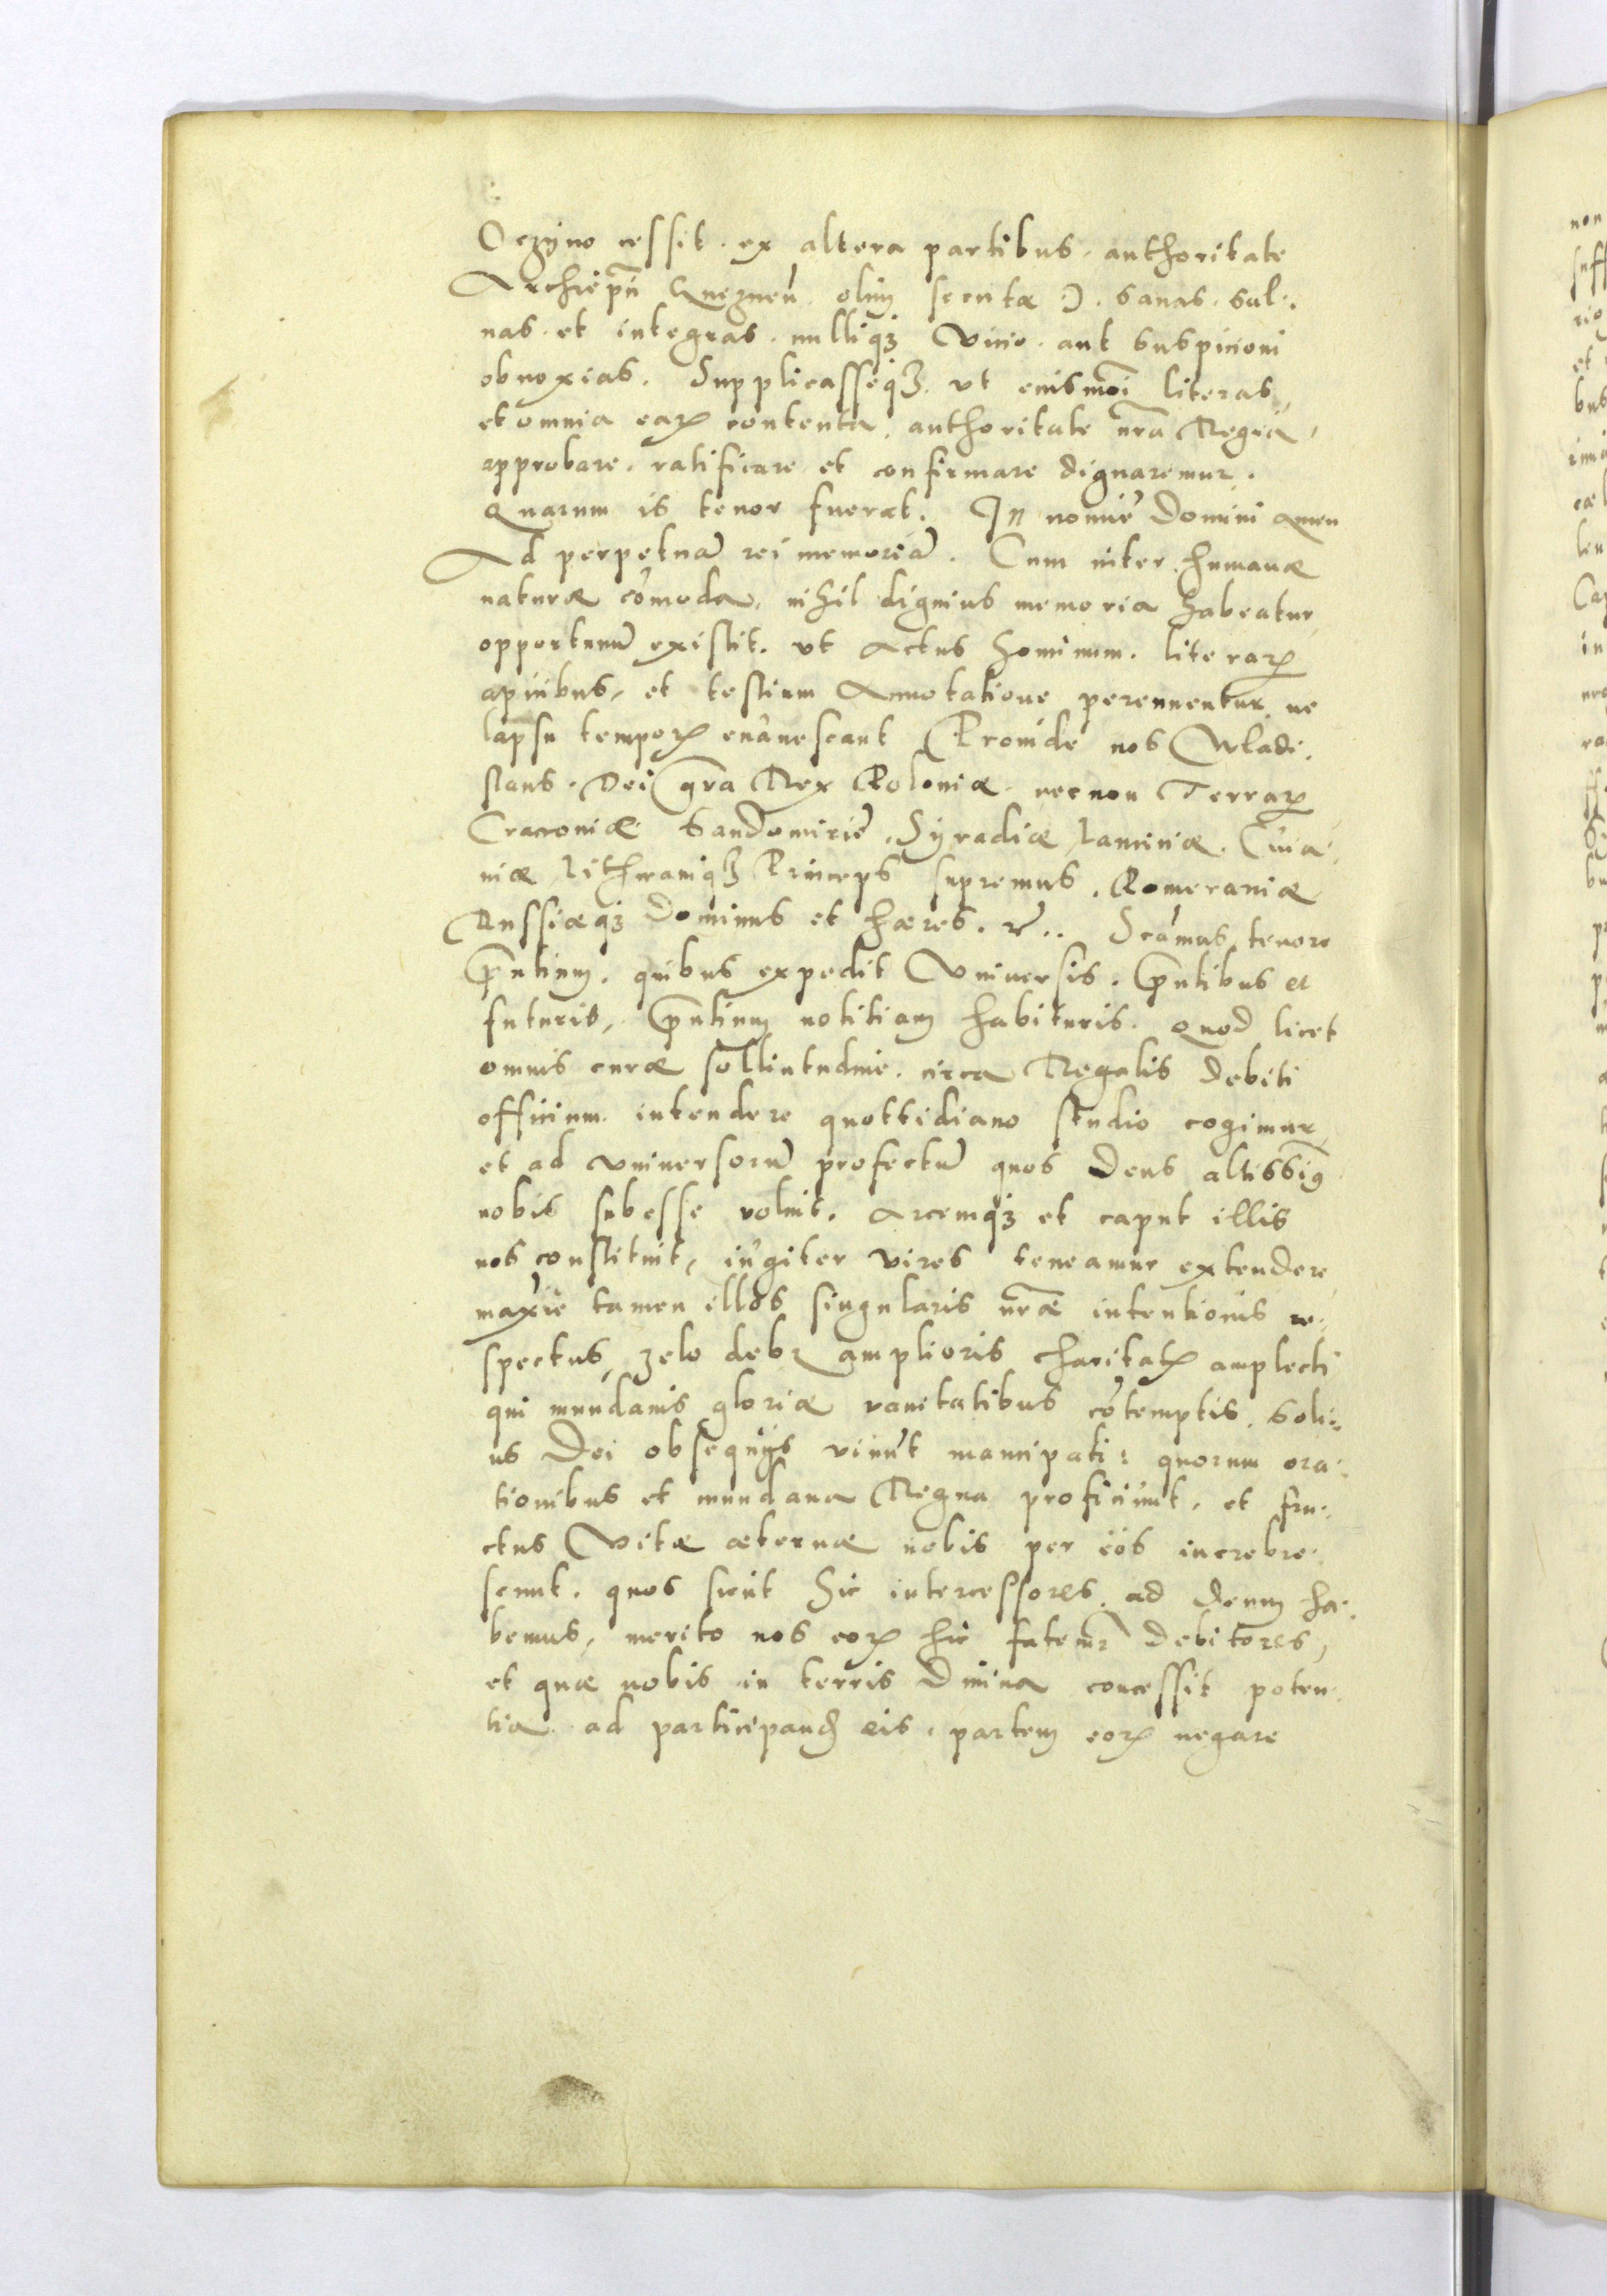 Oczÿno cessit . ex altera partibus . authoritate
Archiep̃ñ Gnezneñ . olim secuta ) . sanas . sal¬
uas . et integras . nulliqꝫ Vicio . aut suspicioni
obnoxias . Supplicasseqꝫ . vt eiusmõi literas
et omnia eaꝝ contenta . authoritate nrã Regia
approbare . ratificare et confirmare dignaremur .
Quarum is tenor fuerat . In nomiẽ Domini amen
Ad perpetuã rei memoriã . Cum inter humanæ
naturæ cõmoda, nihil dignius memoria habeatur
opportunũ existit . vt actus hominum . literaꝝ
apicibus, et testium Annotatione perennentur, ne
lapsu tempoꝝ euãnescant Proinde nos Wladi¬
slaus . Dei gr̃a Rex Poloniæ . necnon Terraꝝ
Cracouiæ Sandomiriẽ . Sÿradiæ, Lanciciæ . Cuia¬
uiæ Lithuaniqꝫ Princeps supremus . Pomeraniæ
Russiæqꝫ Dominus et hæres . &c .. Significamus tenore
p̃ntium . quibus expedit Vniuersis . p̃ntibus et
futuris, p̃ntium notitiam habituris . quod licet
omnis curæ sollicitudine . circa Regalis debiti
officium . intendere quottidiano studio cogimur,
et ad vniuersorũ profectũ quos Deus altissimꝰ
nobis subesse voluit . arcemqꝫ et caput illis
nos constituit, iugiter vires teneamur extendere
maxiẽ tamen illos singularis nr̃æ intentionis re¬
spectus, zelo debꝫ amplioris charitatꝭ amplecti
qui mundanis gloriæ vanitatibus cõtemptis . Soli¬
us Dei obsequijs viuũt mancipati : quorum ora¬
tionibus et mundana Regna proficiunt . et fru¬
ctus Vitæ æternæ nobis per eos increbre¬
scunt . quos sicut hic intercessores . ad deum ha¬
bemus, merito nos eoꝝ hic fatemꝛ debitores,
et quæ nobis in terris Diuina concessit poten¬
tia . ad participanđ eis . partem eoꝝ negare